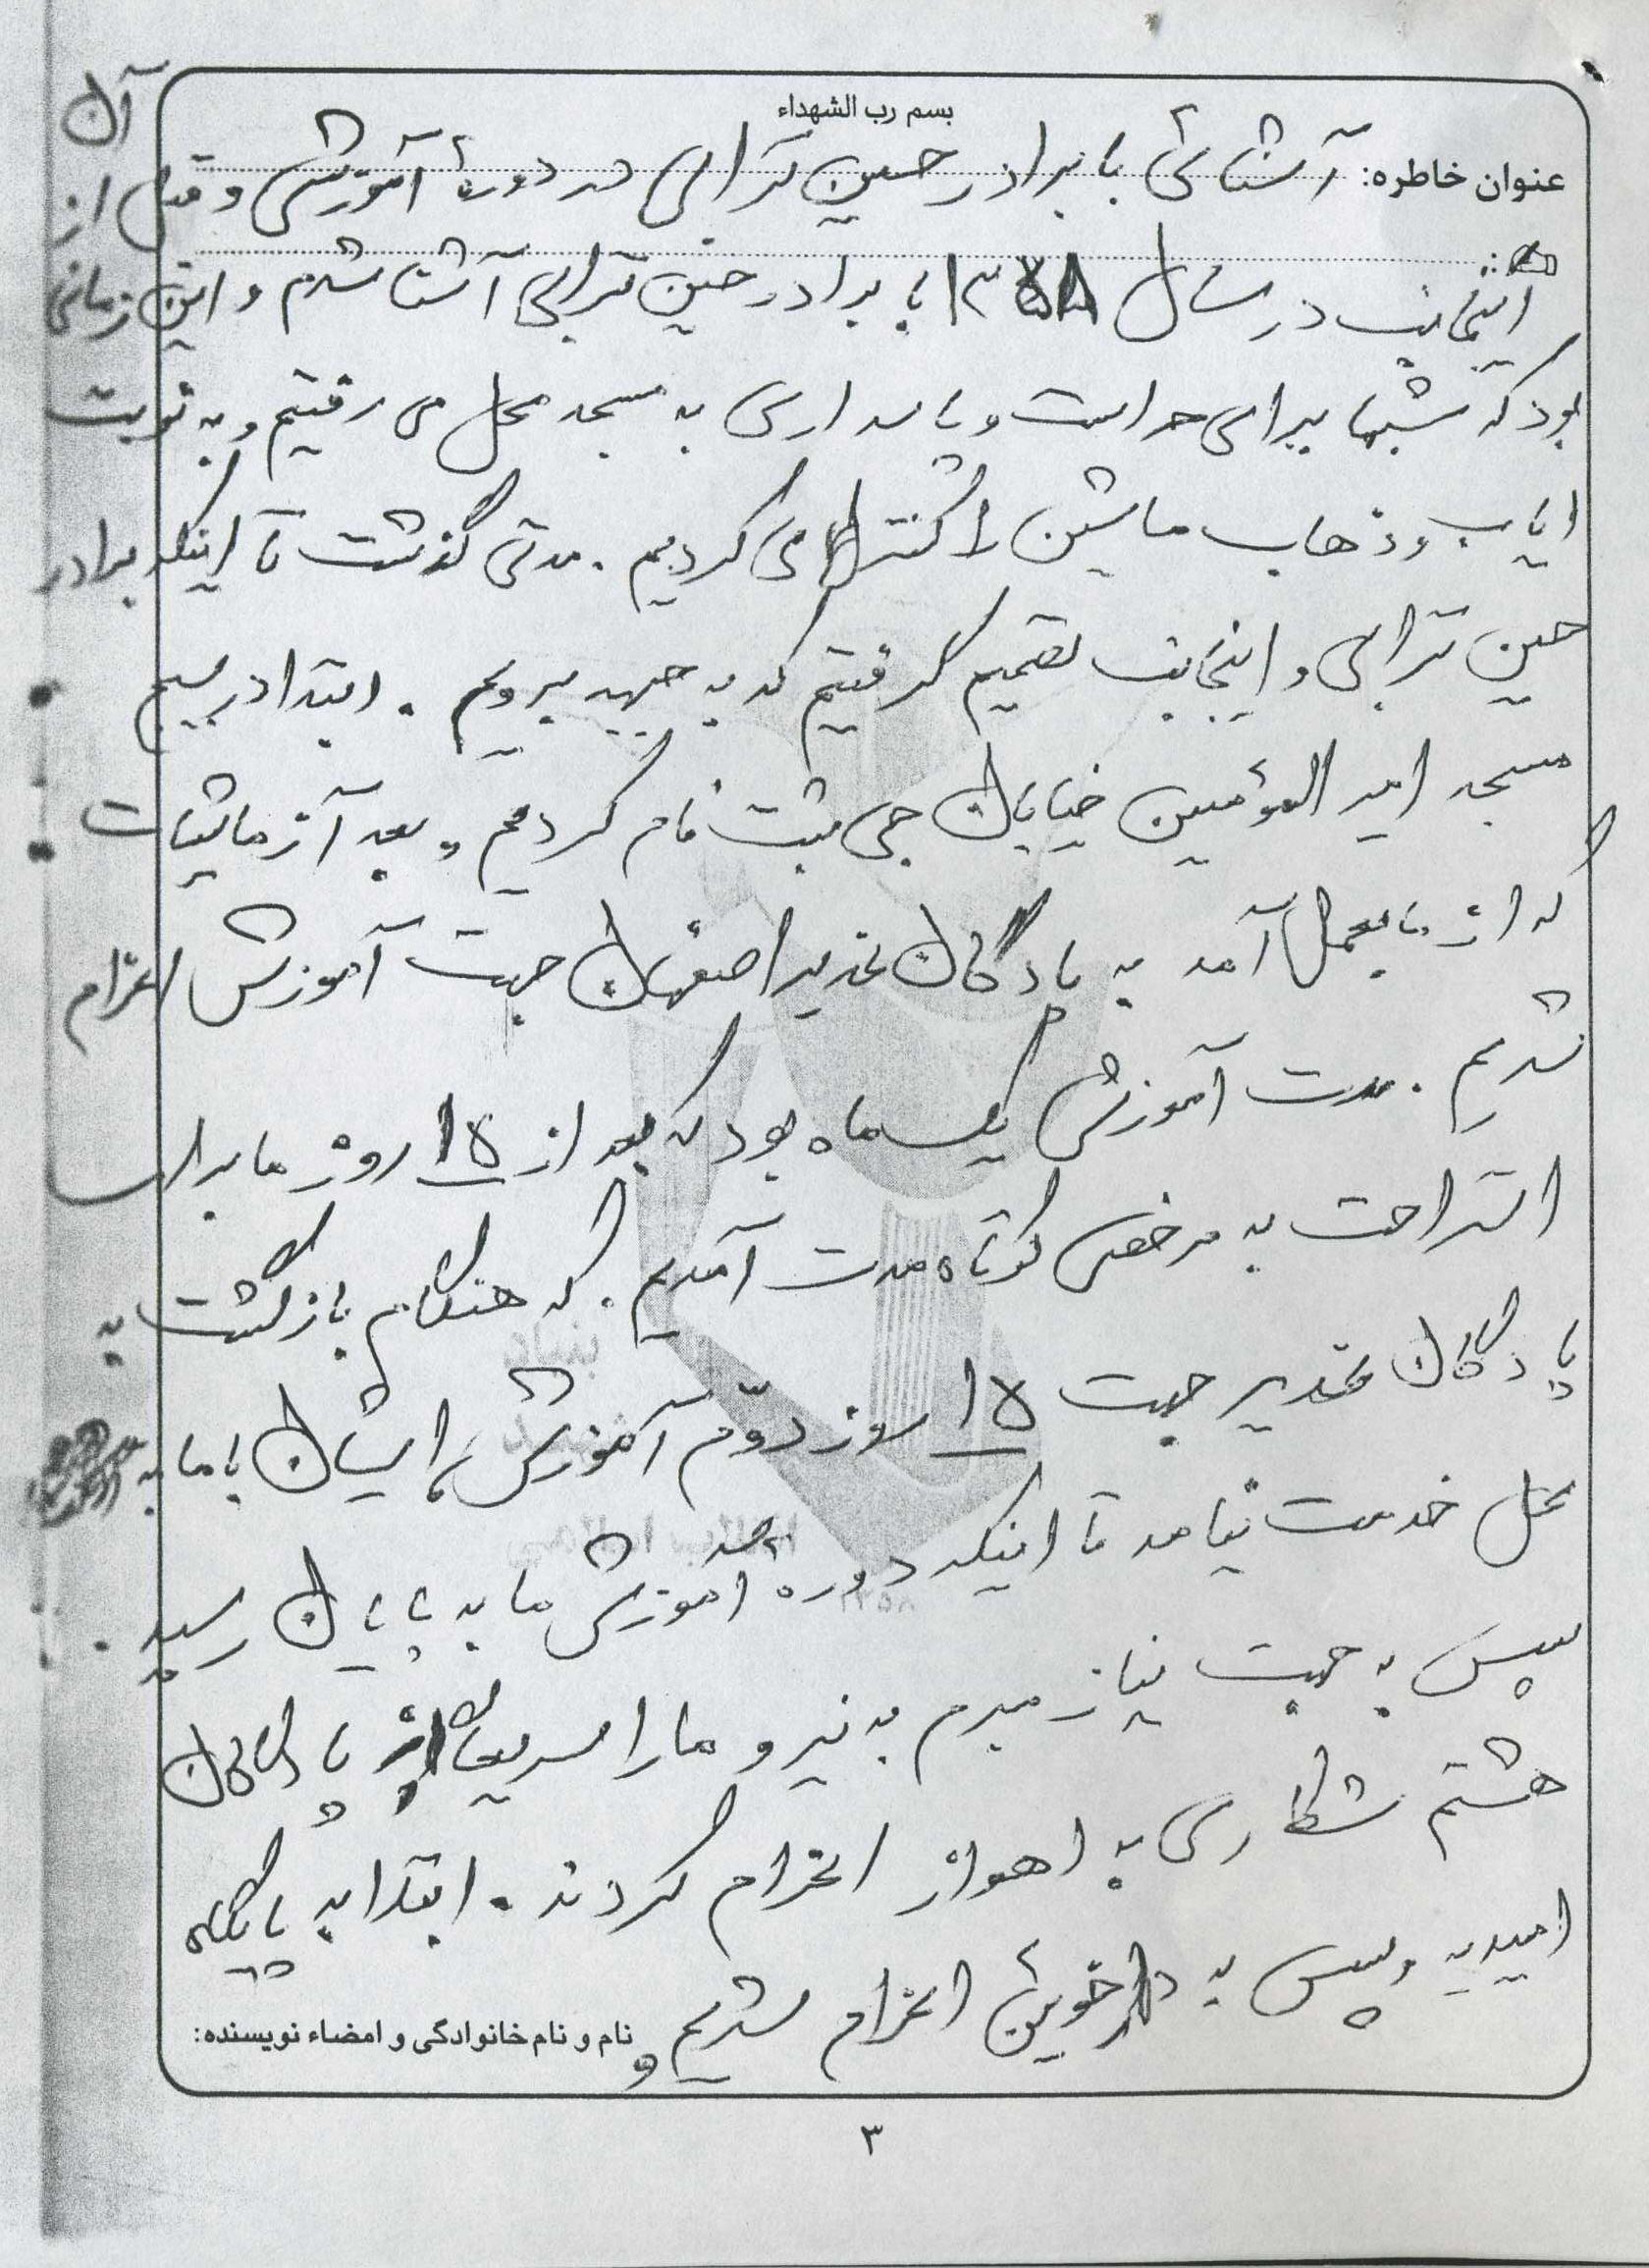 بسم رب الشهداء
عنوان خاطره: آشنائی با برادر حسین ترابی در دورهٔ آموزشی و قبل از آن
اینجانب در سال ۱۳۵۸ با برادر حسین ترابی آشنا شدم و این زمانی
بود که شبها برای حراست و پاسداری به مسجد محل می رفتیم و به نوبت
ایاب و ذهاب ماشین را کنترل می کردیم . مدتی گذشت تا اینکه برادر
حسین ترابی و اینجانب تصمیم گرفتیم که به جبهه برویم . ابتدا در بسیج
مسجد امیر المؤمنین خیابان جی ثبت نام کردیم و بعد آزمایشات
که از ما بعمل آمد به پادگان غدیر اصفهان جهت آموزش اعزام
شدیم . مدت آموزش یک ماه بود که بعد از ۱۵ روز ما برای
استراحت به مرخصی کوتاه مدت آمدیم . که هنگام بازگشت به
پادگان غدیر جهت ۱۵ روز دوّم آموزش ، ایشان با ما به
محل خدمت نیامد تا اینکه دوره آموزش ما به پایان رسید .
سپس به جهت نیاز مبرم به نیرو ما را سریعاً از پادگان
هشتم شکاری به اهواز اعزام کردند . ابتدا به پایگاه
امیدیه و سپس به دارخوئین اعزام شدیم و
نام و نام خانوادگی و امضاء نویسنده:
۳